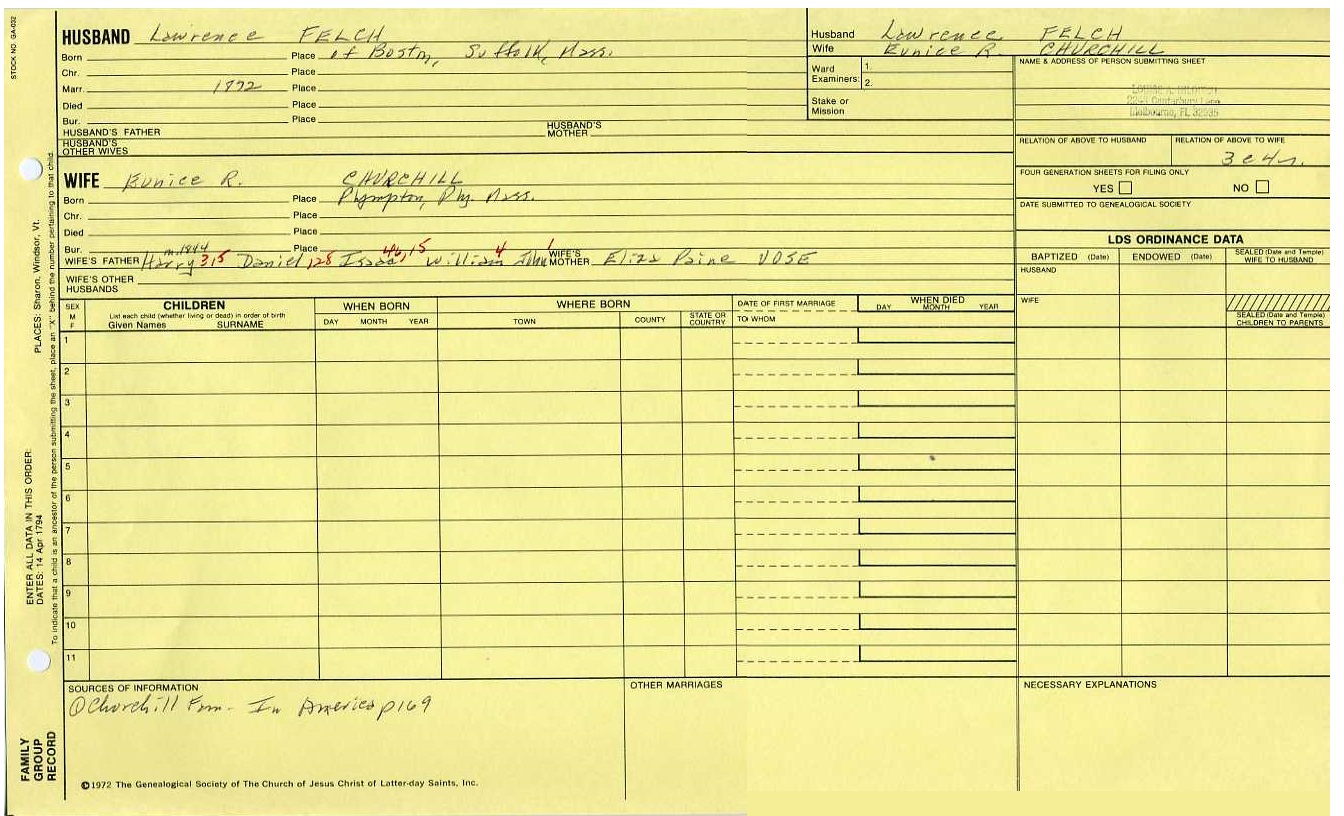 STOCK NO. GA-032
HUSBAND Lawrence FELCH
Born Place of Boston, Suffolk, Mass.
Chr. Place
Marr. 1892 Place
Died Place
Bur. Place
HUSBAND'S FATHER HUSBAND'S MOTHER
HUSBAND'S OTHER WIVES
Husband Lawrence FELCH
Wife Eunice R. CHURCHILL
Ward Examiners: 1.
2.
Stake or Mission
NAME & ADDRESS OF PERSON SUBMITTING SHEET
Melbourne, FL 32935
RELATION OF ABOVE TO HUSBAND RELATION OF ABOVE TO WIFE
3c4r.
FOUR GENERATION SHEETS FOR FILING ONLY
YES NO
DATE SUBMITTED TO GENEALOGICAL SOCIETY
WIFE Eunice R. CHURCHILL
Born Place Plympton, Ply. Mass.
Chr. Place
Died Place
Bur. Place
m. 1844
WIFE'S FATHER Harry 315 Daniel 128 Isaac 46, 15 William 4 John 1 WIFE'S MOTHER Eliza Paine VOSE
WIFE'S OTHER HUSBANDS
LDS ORDINANCE DATA
BAPTIZED (Date) ENDOWED (Date) SEALED (Date and Temple) WIFE TO HUSBAND
HUSBAND
WIFE
SEALED (Date and Temple) CHILDREN TO PARENTS
SEX M F
CHILDREN
List each child (whether living or dead) in order of birth
Given Names SURNAME
WHEN BORN
DAY MONTH YEAR
WHERE BORN
TOWN COUNTY STATE OR COUNTRY
DATE OF FIRST MARRIAGE
TO WHOM
WHEN DIED
DAY MONTH YEAR
1
2
3
4
5
6
7
8
9
10
11
SOURCES OF INFORMATION
① Churchill Fam. In America p169
OTHER MARRIAGES
NECESSARY EXPLANATIONS
©1972 The Genealogical Society of The Church of Jesus Christ of Latter-day Saints, Inc.
FAMILY GROUP RECORD
ENTER ALL DATA IN THIS ORDER:
DATES: 14 Apr 1794
PLACES: Sharon, Windsor, Vt.
To indicate that a child is an ancestor of the person submitting the sheet, place an "X" behind the number pertaining to that child.